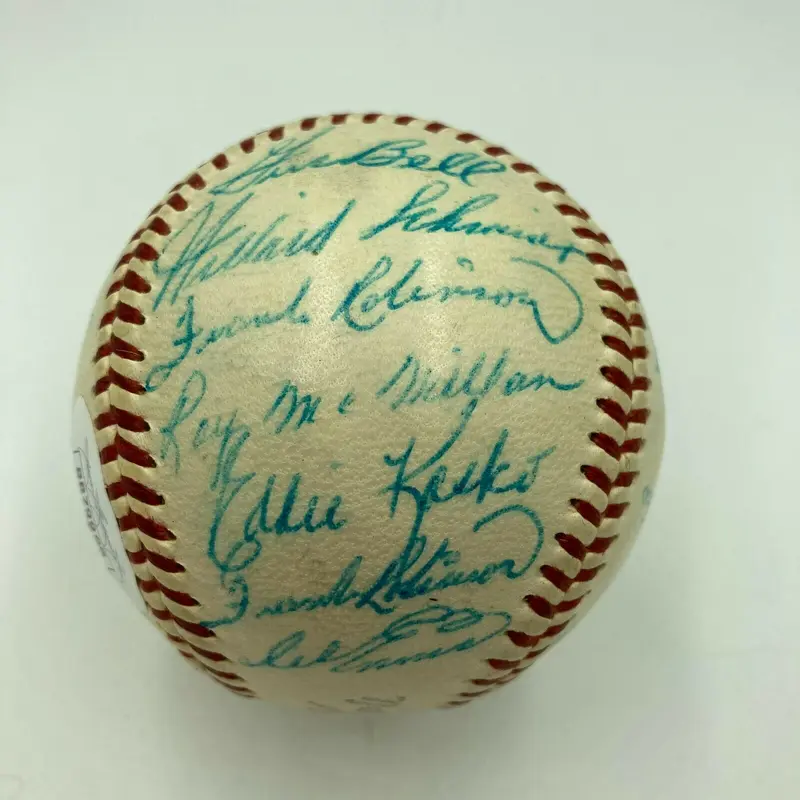 Gus Bell
Willard Schmidt
Frank Robinson
Roy McMillan
Eddie Kasko
Frank Robinson
Del Ennis